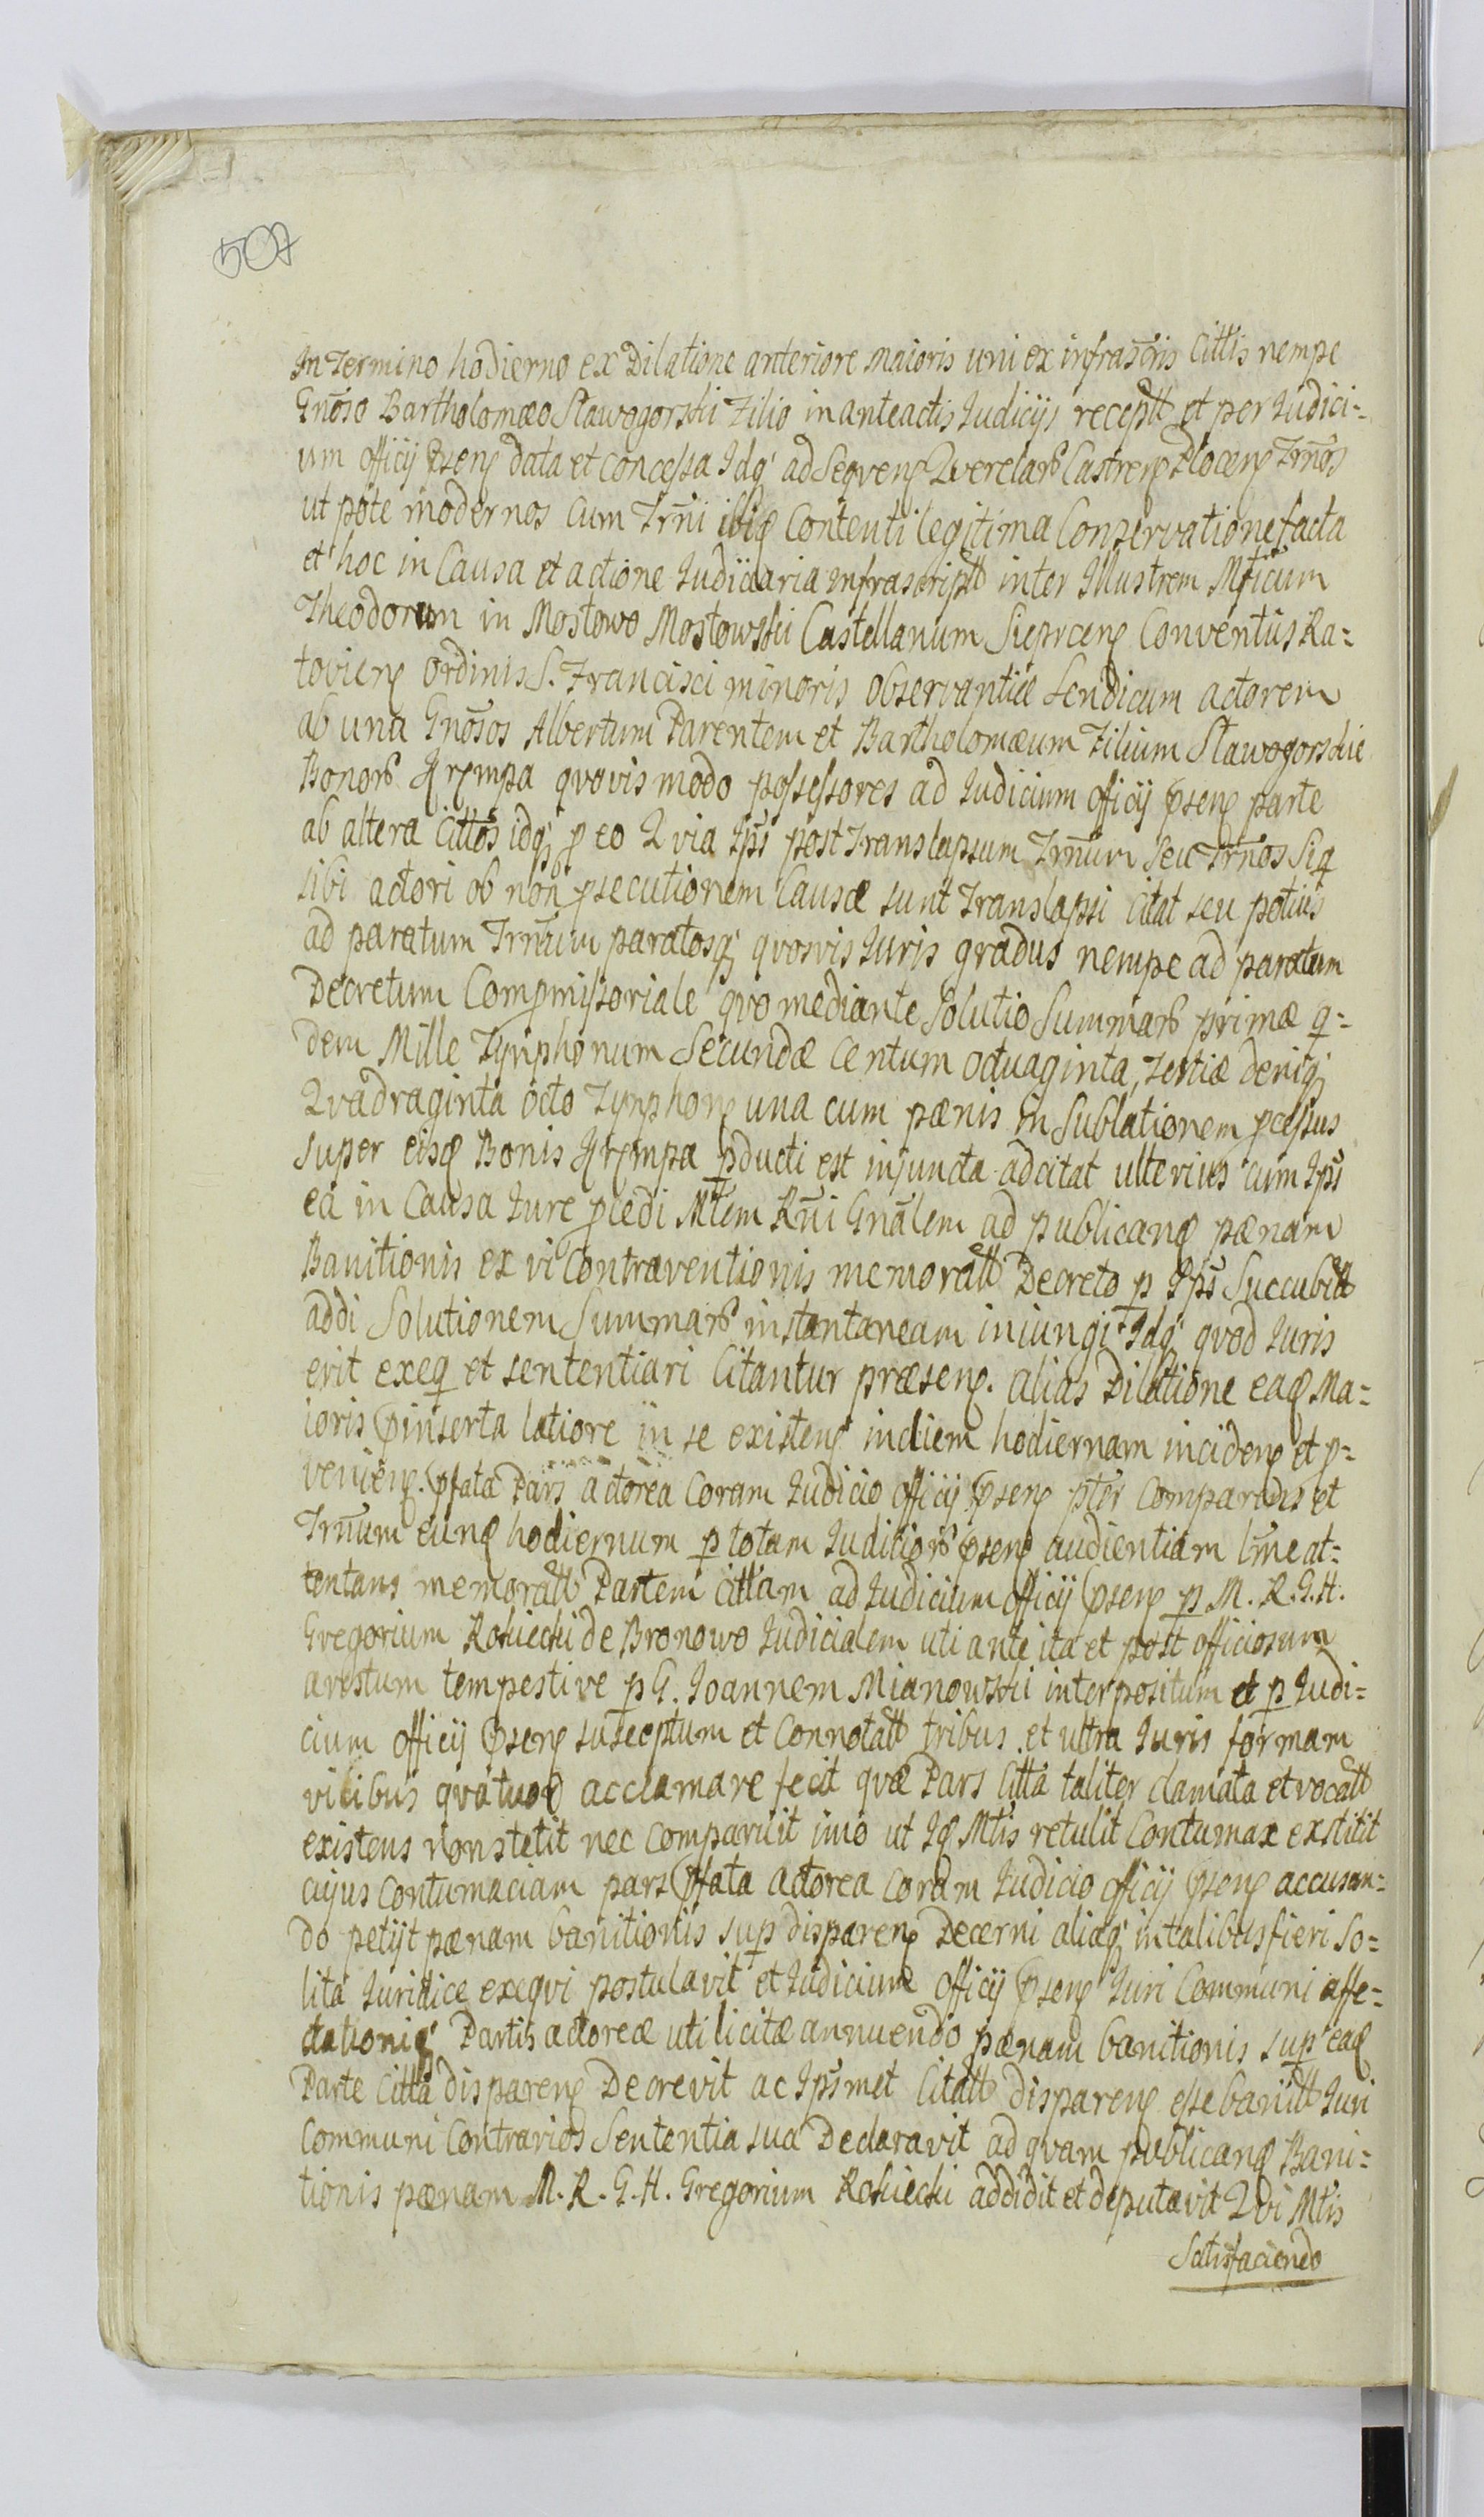 507
In Termino hodierno ex Dilatione anteriore maioris uni ex infrascris Cittis nempe
Gnoso Bartholomæo Sławogorski Filio in anteactis Iudicijs receptt et per Iudici=
um officij Psens data et concessa Idq ad Sequens Querelarb Castrens Plocens Trnos
ut pote modernos cum Trni ibiq Contenti legitima Conservatione facta
et hoc in Causa et actione Iudiciaria Infrascriptt inter Illustrem Mficum
Theodorum in Mostowo Mostowski Castellanum Sieprcens Conventus Ra=
toviens ordinis S. Francisci minoris observantiæ Sendicum actorem
ab una Gnosos Albertum Parentem et Bartholomæum Filium Sławogorskie
Bonorb Krempa quovis modo possessores ad Iudicium officij psens parte
ab altera Cittos idq p eo Quia Ips post Translapsum Trnum Seu Trnos Siq
sibi actori ob non psecutionem Causæ sunt Translapsi Citat seu potius
ad paratum Trnum paratosq quosvis Iuris gradus nempe ad paratum
Decretum Compmissoriale quo mediante Solutio Summarb primæ q=
dem Mille Tynphonum Secundæ Centum octuaginta, Tertiæ deniq
Quadraginta octo Tynphons una cum pænis in Sublationem pcessus
super eisq Bonis Krempa pducti est injuncta adcitat ulterius cum Ips
ea in Causa Iure pcedi Mtem Rni Gnalem ad publicanq pænam
Banitionis ex vi Contraventionis memoratt Decreto p Ips Succubitt
addi Solutionem Summarb instantaneam iniungi Idq quod Iuris
erit exeq et sententiari Citantur præsens. alias Dilatione eaq Ma=
ioris pinserta latiore in se existens in diem hodiernam incidens et p=
veniens. pfata Pars actorea Coram Iudicio officij psens pter Comparedis et
Trnum eunq hodiernum p totam Iuditiorb psens audientiam lme at=
tentans memoratt Partem Cittam ad Iudicium officij psens p M. R. G. H.
Gregorium Rokicki de Bronowo Iudicialem uti ante ita et post officiosum
arestum tempestive p G. Ioannem Mianowski interpositum et p Iudi=
cium officij psens susceptum et Connotatt tribus et ultra Iuris formam
vicibus quatuor acclamare fecit quæ Pars Citta taliter clamata et vocatt
existens non stetit nec Comparuit imo ut Iq Mtis retulit Contumax exstitit
cujus Contumaciam pars pfata actorea coram Iudicio officij psens accusan=
do petijt pænam banitionis sup disparens Decerni aliaq in talibus fieri so=
lita Iuridice exequi postulavit et Iudicium officij psens Iuri Communi affe=
ctationiq Partis actoreæ uti licitæ annuendo pænam banitionis sup eaq
Parte Citta disparens Decrevit ac Ipsmet Citatt disparens esse banitt Iuri
Communi Contrarios Sententia sua Declaravit ad quam publicanq Bani=
tionis pænam M. R. G. H. Gregorium Rokicki addidit et deputavit Qui Mtis
Satisfaciendo